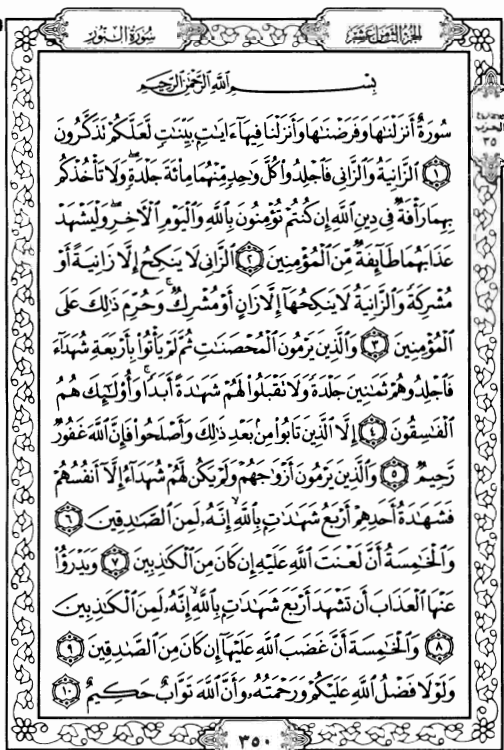 سُورَةُ النُّورِ
الجُزْءُ الثَّامِنَ عَشَرَ
بِسْمِ اللَّهِ الرَّحْمَٰنِ الرَّحِيمِ
سُورَةٌ أَنزَلْنَٰهَا وَفَرَضْنَٰهَا وَأَنزَلْنَا فِيهَآ ءَايَٰتٍۭ بَيِّنَٰتٍ لَّعَلَّكُمْ تَذَكَّرُونَ
١ ٱلزَّانِيَةُ وَٱلزَّانِى فَٱجْلِدُوا۟ كُلَّ وَٰحِدٍ مِّنْهُمَا مِا۟ئَةَ جَلْدَةٍ ۖ وَلَا تَأْخُذْكُم
بِهِمَا رَأْفَةٌ فِى دِينِ ٱللَّهِ إِن كُنتُمْ تُؤْمِنُونَ بِٱللَّهِ وَٱلْيَوْمِ ٱلْءَاخِرِ ۖ وَلْيَشْهَدْ
عَذَابَهُمَا طَآئِفَةٌ مِّنَ ٱلْمُؤْمِنِينَ ٢ ٱلزَّانِى لَا يَنكِحُ إِلَّا زَانِيَةً أَوْ
مُشْرِكَةً وَٱلزَّانِيَةُ لَا يَنكِحُهَآ إِلَّا زَانٍ أَوْ مُشْرِكٌ ۚ وَحُرِّمَ ذَٰلِكَ عَلَى
ٱلْمُؤْمِنِينَ ٣ وَٱلَّذِينَ يَرْمُونَ ٱلْمُحْصَنَٰتِ ثُمَّ لَمْ يَأْتُوا۟ بِأَرْبَعَةِ شُهَدَآءَ
فَٱجْلِدُوهُمْ ثَمَٰنِينَ جَلْدَةً وَلَا تَقْبَلُوا۟ لَهُمْ شَهَٰدَةً أَبَدًا ۚ وَأُو۟لَٰٓئِكَ هُمُ
ٱلْفَٰسِقُونَ ٤ إِلَّا ٱلَّذِينَ تَابُوا۟ مِنۢ بَعْدِ ذَٰلِكَ وَأَصْلَحُوا۟ فَإِنَّ ٱللَّهَ غَفُورٌ
رَّحِيمٌ ٥ وَٱلَّذِينَ يَرْمُونَ أَزْوَٰجَهُمْ وَلَمْ يَكُن لَّهُمْ شُهَدَآءُ إِلَّآ أَنفُسُهُمْ
فَشَهَٰدَةُ أَحَدِهِمْ أَرْبَعُ شَهَٰدَٰتٍۭ بِٱللَّهِ ۙ إِنَّهُۥ لَمِنَ ٱلصَّٰدِقِينَ ٦
وَٱلْخَٰمِسَةُ أَنَّ لَعْنَتَ ٱللَّهِ عَلَيْهِ إِن كَانَ مِنَ ٱلْكَٰذِبِينَ ٧ وَيَدْرَؤُا۟
عَنْهَا ٱلْعَذَابَ أَن تَشْهَدَ أَرْبَعَ شَهَٰدَٰتٍۭ بِٱللَّهِ ۙ إِنَّهُۥ لَمِنَ ٱلْكَٰذِبِينَ
٨ وَٱلْخَٰمِسَةَ أَنَّ غَضَبَ ٱللَّهِ عَلَيْهَآ إِن كَانَ مِنَ ٱلصَّٰدِقِينَ ٩
وَلَوْلَا فَضْلُ ٱللَّهِ عَلَيْكُمْ وَرَحْمَتُهُۥ وَأَنَّ ٱللَّهَ تَوَّابٌ حَكِيمٌ ١٠
٣٥٠
الحزب
٣٥